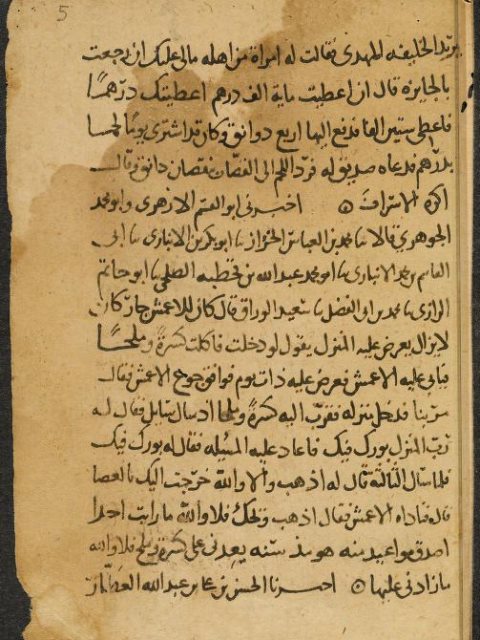 5
يريد الخليفه المهدى فقالت له امراة من اهله مالى عليك ان رجعت
بالجايزة قال ان اعطيت ماية الف درهم اعطيتك درهمًا
فاعطى ستين الفا فدفع اليها اربع دوانق وكان قد اشترى يومًا لحما
بدرهم فدعاه صديق له فردّ اللحم الى القصّاب بنقصان دانق وقال
اكره الاسراف ۞ اخبرنى ابو القسم الازهرى وابو محمد
الجوهرى قالا نا محمد بن العباس الخزاز نا ابو بكر بن الانبارى نا ابى
القاسم بن محمد الانبارى نا ابو محمد عبد الله بن قحطبه الصلحى نا ابو حاتم
الرازى نا محمد بن ابى الفضل نا سعيد الوراق قال كان للاعمش جار كان
لايزال يعرض عليه المنزل يقول لو دخلت فاكلت كسرةً وملحًا
فيابى عليه الاعمش فعرض عليه ذات يوم فوافق جوع الاعمش فقال
مر بنا فدخل منزله فقرّب اليه كسرةً وملحًا اذ سال سايل فقال له
ربّ المنزل بورك فيك فاعاد عليه المسئله فقال له بورك فيك
فلما سال الثالثه قال له اذهب والا والله خرجت اليك بالعصا
قال فناداه الاعمش فقال اذهب ويحك فلا والله ما رايت احدا
اصدق مواعيد منه هو منذ سنه يعدنى على كسرة وملح فلا والله
ما زادنى عليها ۞ اخبرنا الحسن بن على بن عبد الله العطّار